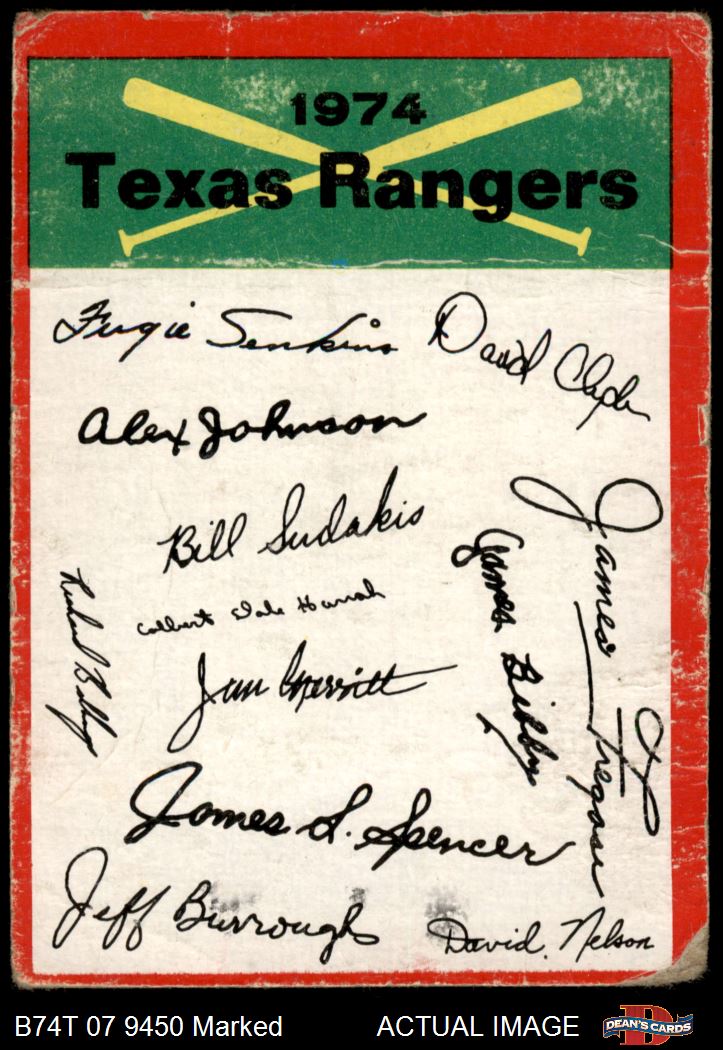 1974
Texas Rangers
Fergie Jenkins
David Clyde
Alex Johnson
Bill Sudakis
James Fregosi
James Bibby
Colbert Dale Harrah
Richard Billings
Jim Merritt
James L. Spencer
Jeff Burroughs
David. Nelson
B74T 07 9450 Marked
ACTUAL IMAGE
D
DEAN'S CARDS